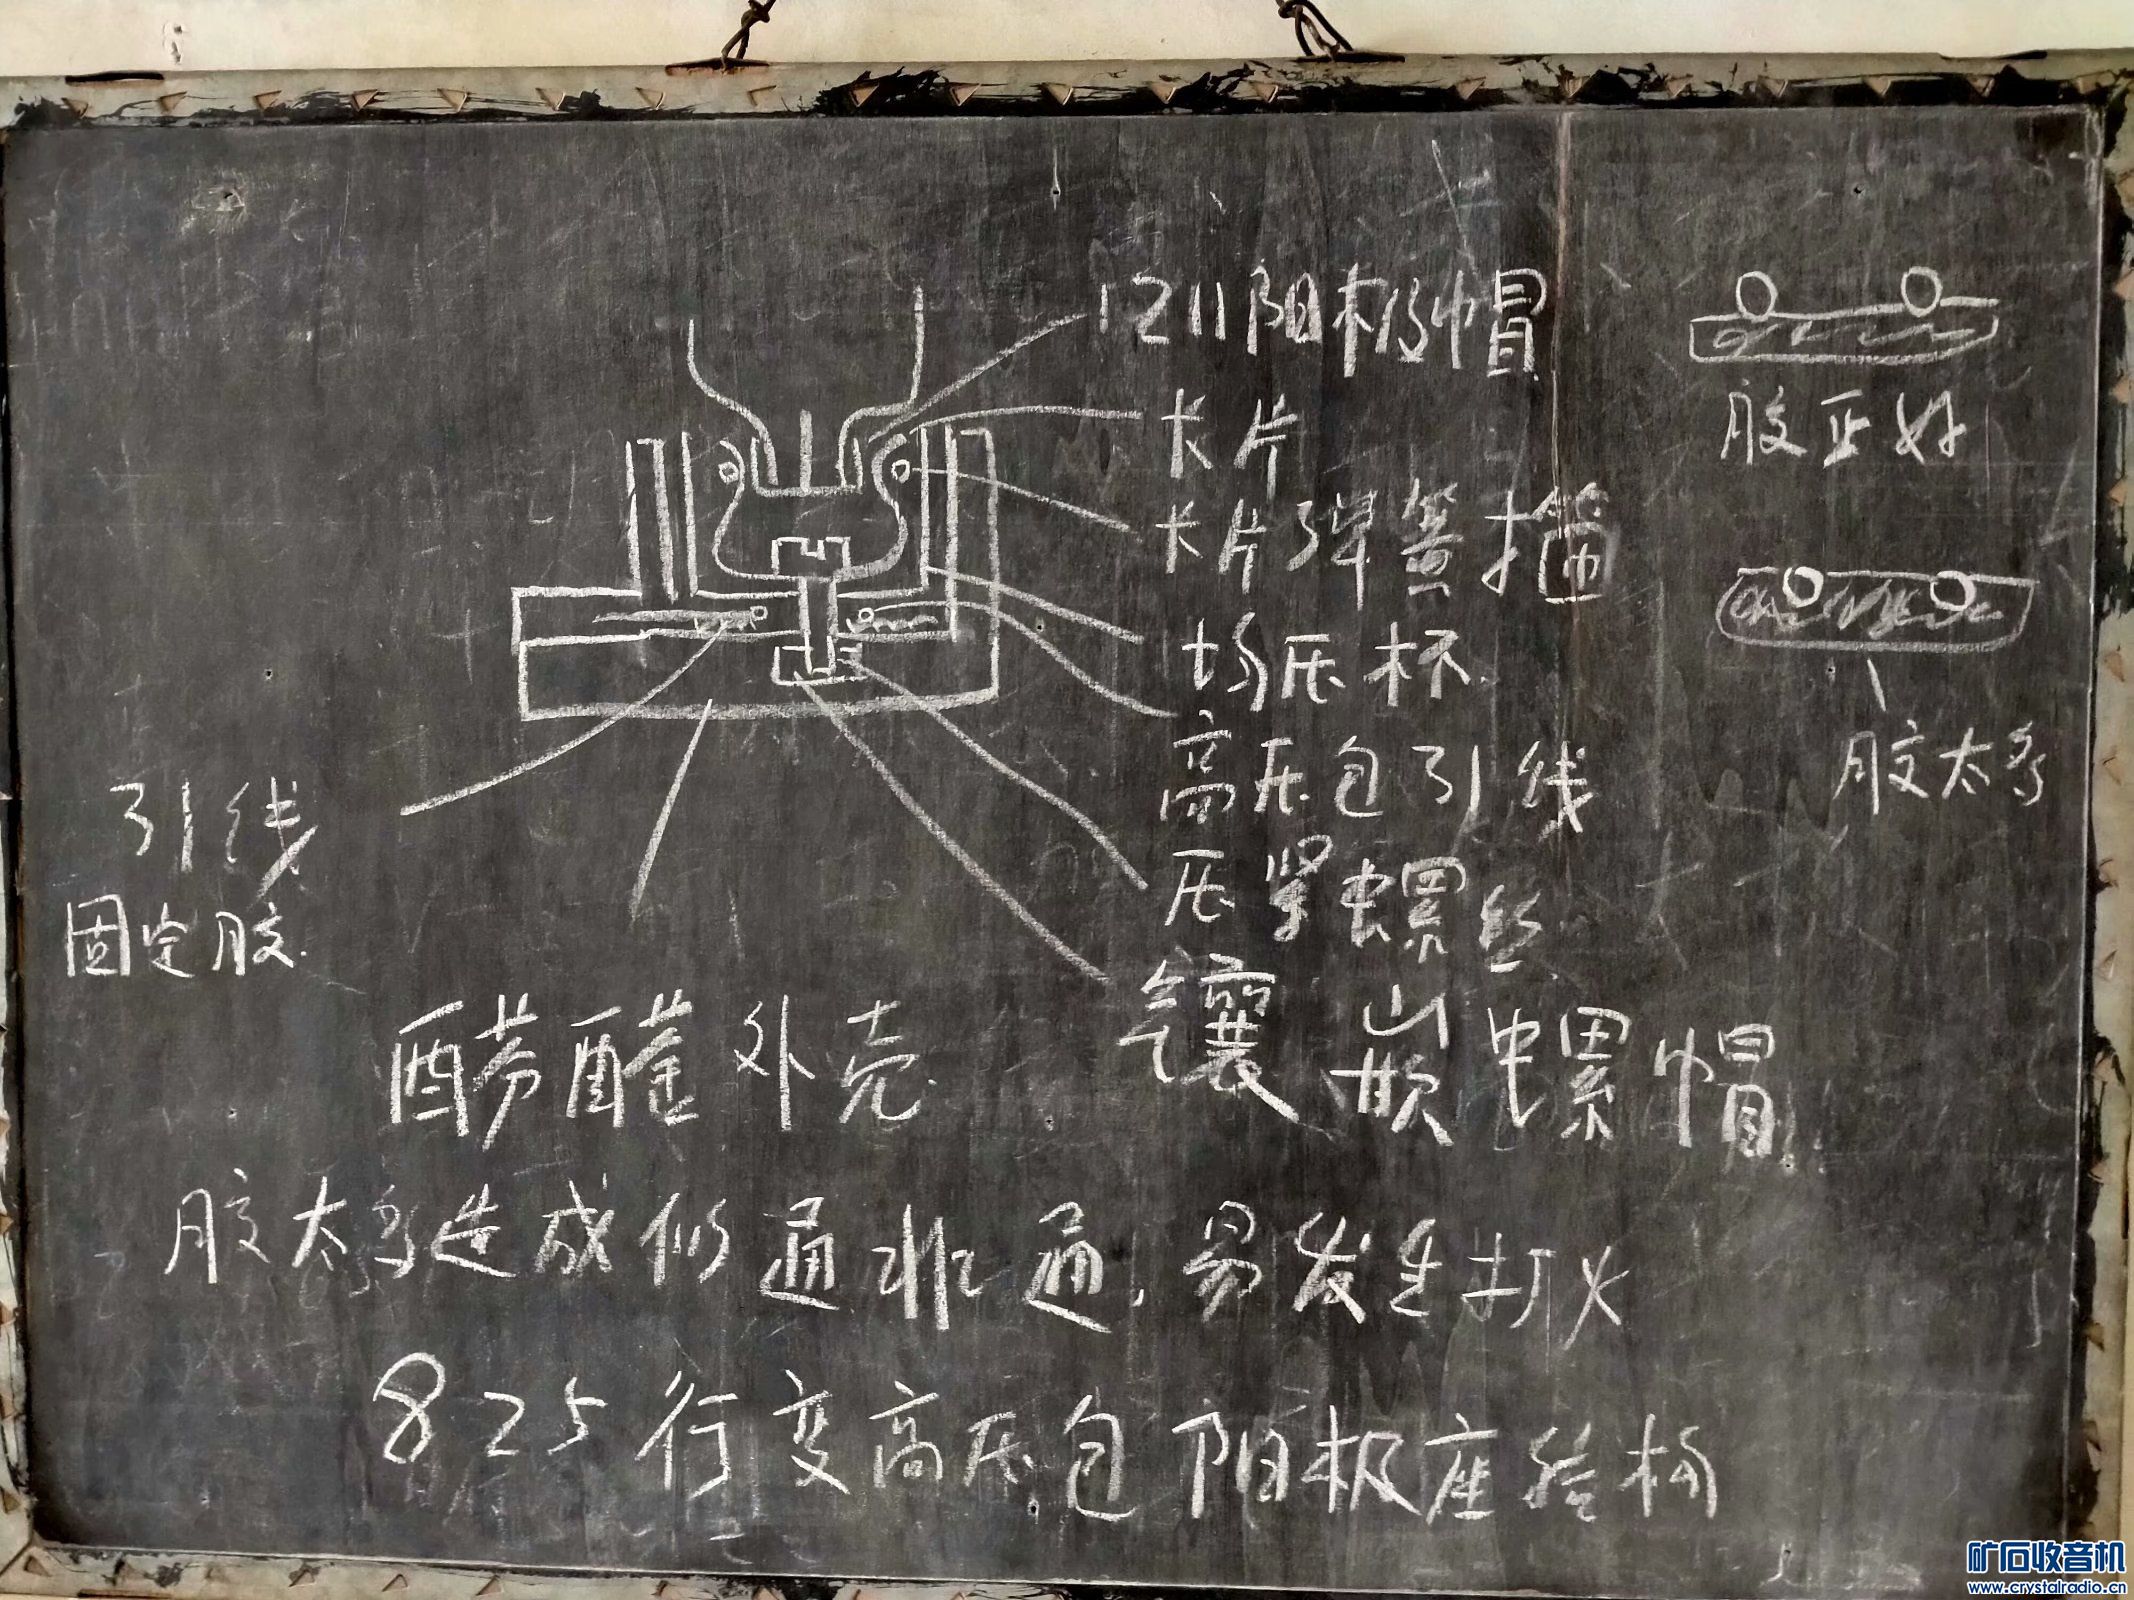 1Z11阳极帽
卡片
胶正好
卡片弹簧箍
均压杯
高压包引线
胶太多
引线
固定胶
压紧螺丝
镶嵌螺帽
酚醛外壳
胶太多造成似通非通,易发生打火
825行变高压包阳极座结构
矿石收音机
www.crystalradio.cn